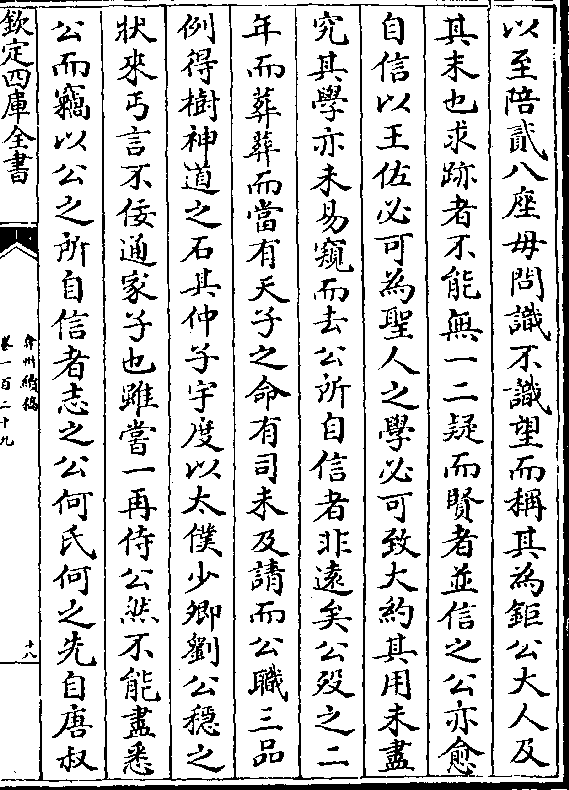 以至陪貳八座毋問識不識望而稱其為鉅公大人及
其末也求跡者不能無一二疑而賢者並信之公亦愈
自信以王佐必可為聖人之學必可致大約其用未盡
究其學亦未易窺而去公所自信者非遠矣公歿之二
年而葬葬而當有天子之命有司未及請而公職三品
例得樹神道之石其仲子宇度以太僕少卿劉公穩之
狀來丐言不佞通家子也雖嘗一再侍公然不能盡悉
公而竊以公之所自信者志之公何氏何之先自唐叔
欽定四庫全書
弇州續稿
卷一百二十九
十八